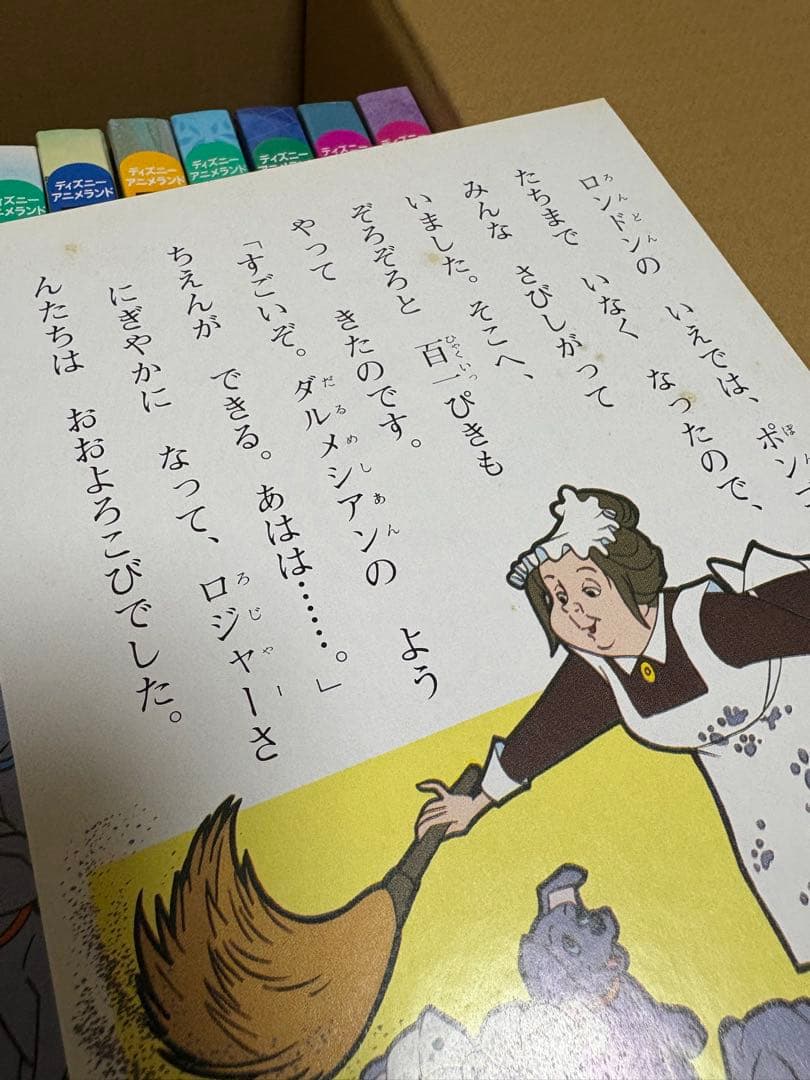 ディズニー
アニメランド
ディズニー
アニメランド
ディズニー
アニメランド
ディズニー
ディズニー
ロンドンの いえでは、ポン
ろんどん
たちまで いなく なったので、
みんな さびしがって
いました。そこへ、
ぞろぞろと 百一ぴきも
ひゃくいっ
やって きたのです。
「すごいぞ。ダルメシアンの よう
だるめしあん
ちえんが できる。あはは……。」
にぎやかに なって、ロジャーさ
ろじゃー
んたちは おおよろこびでした。